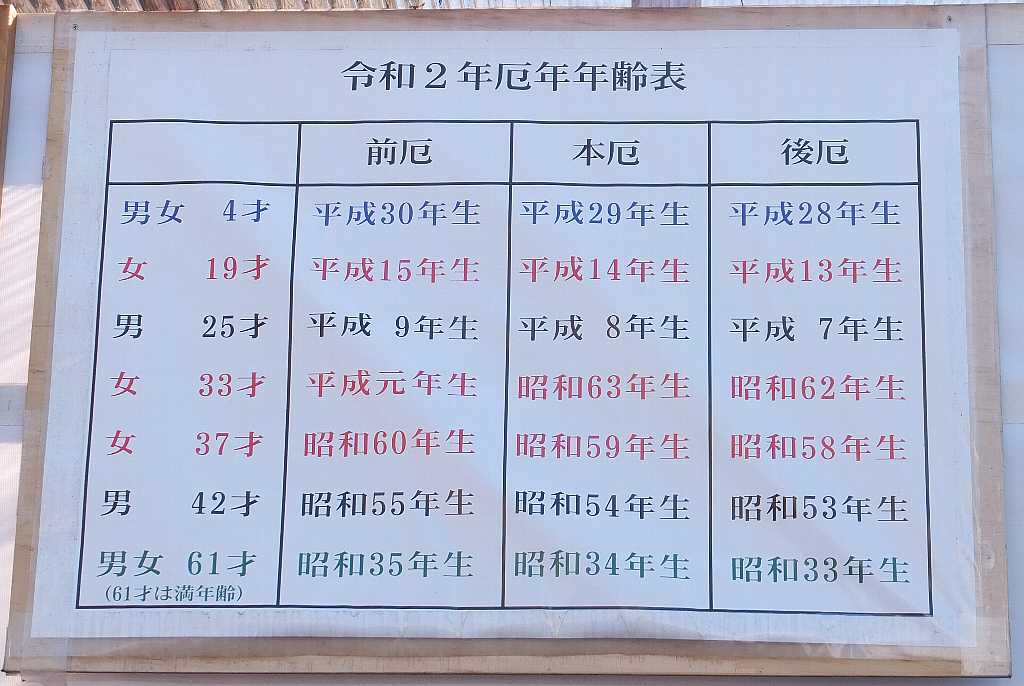 令和2年厄年年齢表
前厄 本厄 後厄
男女 4才 平成30年生 平成29年生 平成28年生
女 19才 平成15年生 平成14年生 平成13年生
男 25才 平成 9年生 平成 8年生 平成 7年生
女 33才 平成元年生 昭和63年生 昭和62年生
女 37才 昭和60年生 昭和59年生 昭和58年生
男 42才 昭和55年生 昭和54年生 昭和53年生
男女 61才 昭和35年生 昭和34年生 昭和33年生
(61才は満年齢)